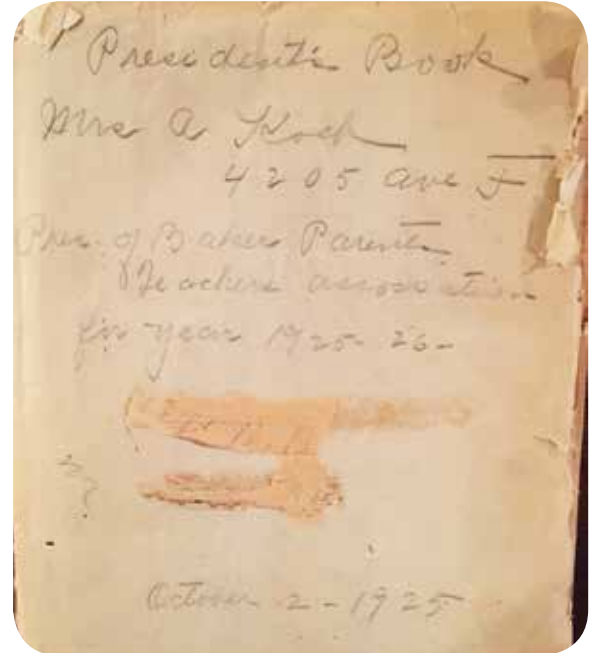 Presidents Book
Mrs A Koch
4205 Ave F
Pres. of Baker Parents
Teachers association
for year 1925-26-
October 2-1925